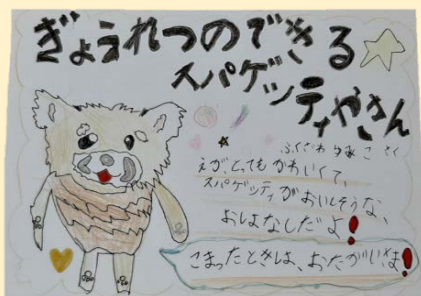 ぎょうれつのできる
スパゲッティやさん
ふくざわゆみこ さく
えが、とってもかわいくて、
スパゲッティがおいしそうな、
おはなしだよ!
こまったときは、おたがいさま!